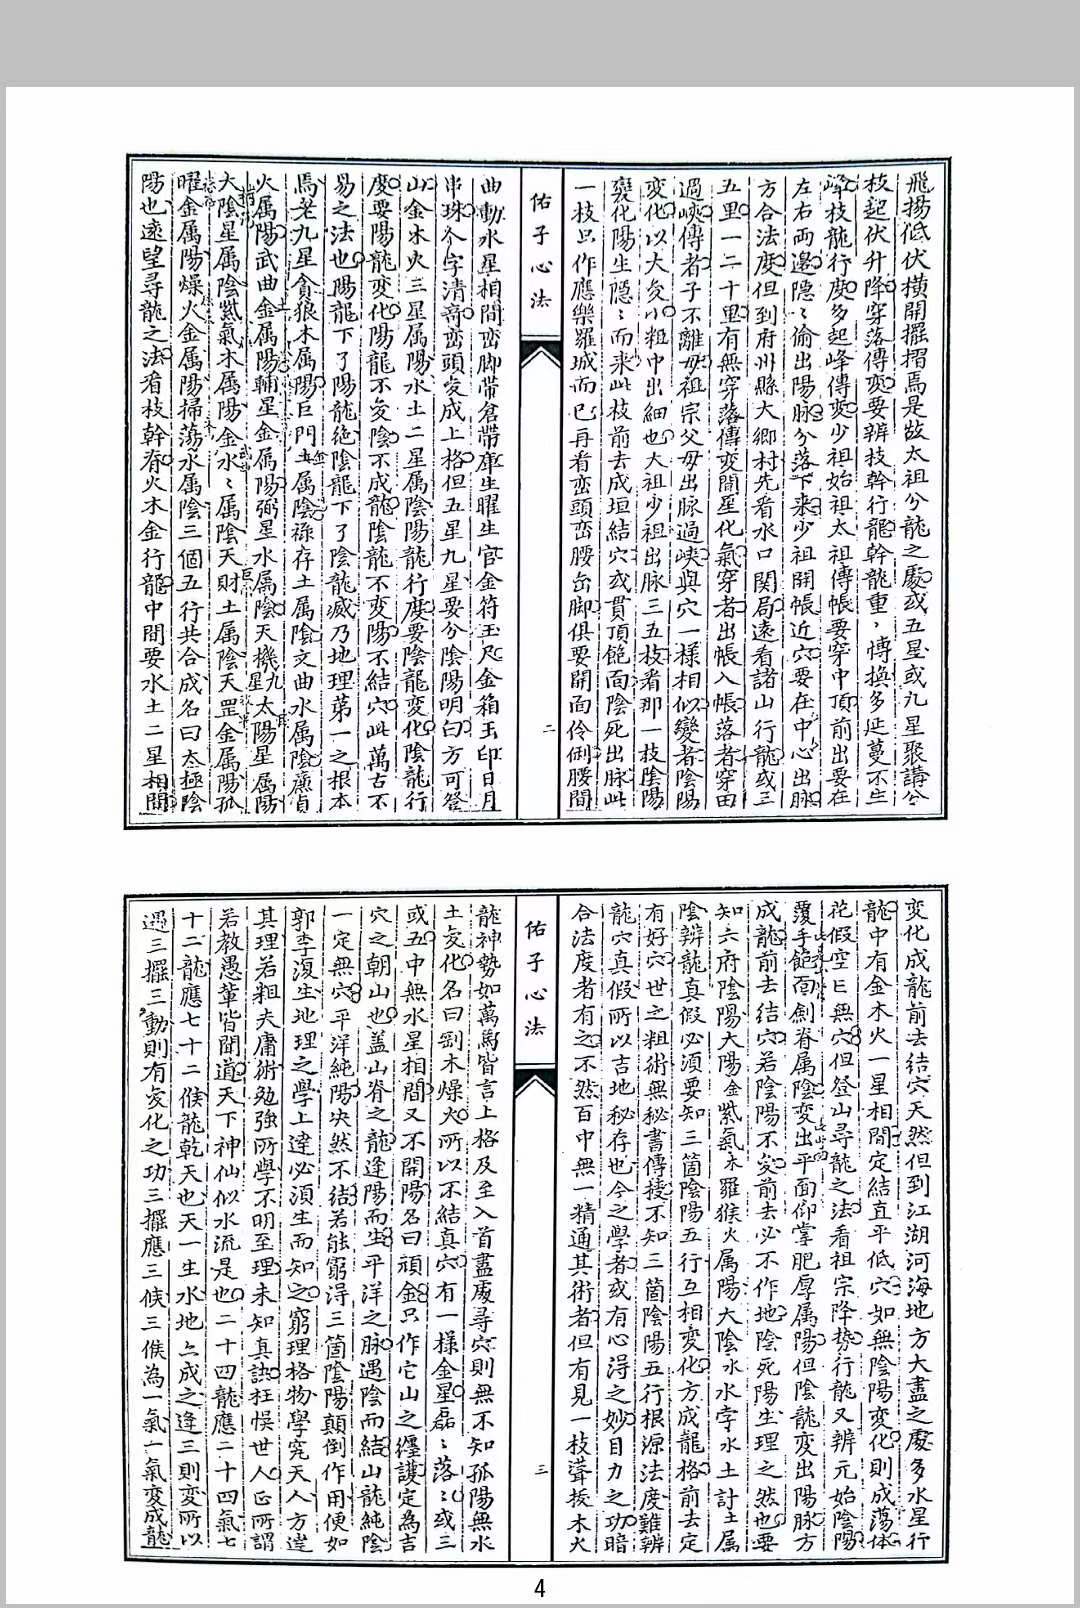 飛揚低伏橫開擺摺馬是故太祖分龍之處或五星或九星聚講分
枝起伏升降穿落傳变要辨枝幹行龍幹龍重，博換多延蔓不生
峰枝龍行度多起峰傳变少祖始祖太祖傳帳要穿中頂前出要在
左右両邊隐〻偷出陽脉分落下来少祖開帳近穴要在中心出脉
方合法度但到府州縣大鄉村先看水口関局遠看諸山行龍或三
五里一二十里有無穿落傳变開星化氣穿者出帳入帳落者穿田
過峽傳者子不離母祖宗父母出脉過峽與穴一樣相似變者陰陽
变化以大灸小粗中出細也大祖少祖出脉三五枝看那一枝陰陽
奠化陽生隠〻而来此枝前去成垣結穴或貫頂飽面陰死出脉此
一枝只作應樂羅城而已再看峦頭峦腰峦脚俱要開面伶俐腰間
佑子心法
二
曲動水星相間峦脚带倉带庫生曜生官金符玉尺金箱玉印日月
串珠个字清奇峦頭变成上格但五星九星要分陰陽明白方可登
山金木火三星属陽水土二星属陰陽龍行度要陰龍变化陰龍行
度要陽龍变化陽龍不灸陰不成龍陰龍不变陽不結穴此萬古不
易之法也陽龍下了陽龍绝陰龍下了陰龍滅乃地理第一之根本
焉老九星貪狼木属陽巨門土属陰禄存土属陰文曲水属陰廉貞
火属陽武曲金属陽輔星金属陽弼星水属陰天機九星太陽星属陽
大陰星属陰紫氣木属陽金水〻属陰天財土属陰天罡金属陽孤
曜金属陽燥火金属陽掃荡水属陰三個五行共合成名曰太極陰
陽也遠望尋龍之法看枝幹脊火木金行龍中間要水土二星相間
变化成龍前去结穴天然但到江湖河海地方大盡之處多水星行
龍中有金木火一星相間定结直平低穴如無陰陽変化則成荡体
花假空亡無穴但登山尋龍之法看祖宗降势行龍又辨元始陰陽
覆手飽面劍脊属陰变出平面仰掌肥厚属陽但陰龍变出陽脉方
成龍前去结穴若陰陽不变前去必不作地陰死陽生理之然也要
知六府陰陽大陽金紫氣木羅猴火属陽大陰水水孛水土計土属
陰辨龍真假必須要知三箇陰陽五行互相变化方成龍格前去定
有好穴世之粗術無秘書傳授不知三箇陰陽五行根源法度難辨
龍穴真假所以吉地秘存也今之學者或有心淂之妙目力之功暗
合法度者有之不然百中無一精通其術者但有見一枝聳拔木火
佑子心法
三
龍神勢如萬馬皆言上格及至入首盡處尋穴則無不知孤陽無水
土変化名曰剛木燥火所以不結真穴有一樣金星磊〻落〻或三
或五中無水星相間又不開陽名曰頑金只作它山之纏護定為吉
穴之朝山也盖山脊之龍逢陽而生平洋之脉遇陰而結山龍純陰
一定無穴平洋純陽决然不结若能窮淂三箇陰陽顛倒作用便如
郭李復生地理之學上達必須生而知之窮理格物學究天人方達
其理若粗夫庸術勉強所學不明至理未知真訣枉悞世人正所謂
若教愚軰皆聞道天下神仙似水流是也二十四龍應二十四氣七
十二龍應七十二候龍乾天也天一生水地六成之逢三則变所以
遇三擺三動則有变化之功三擺應三候三候為一氣一氣变成龍
4